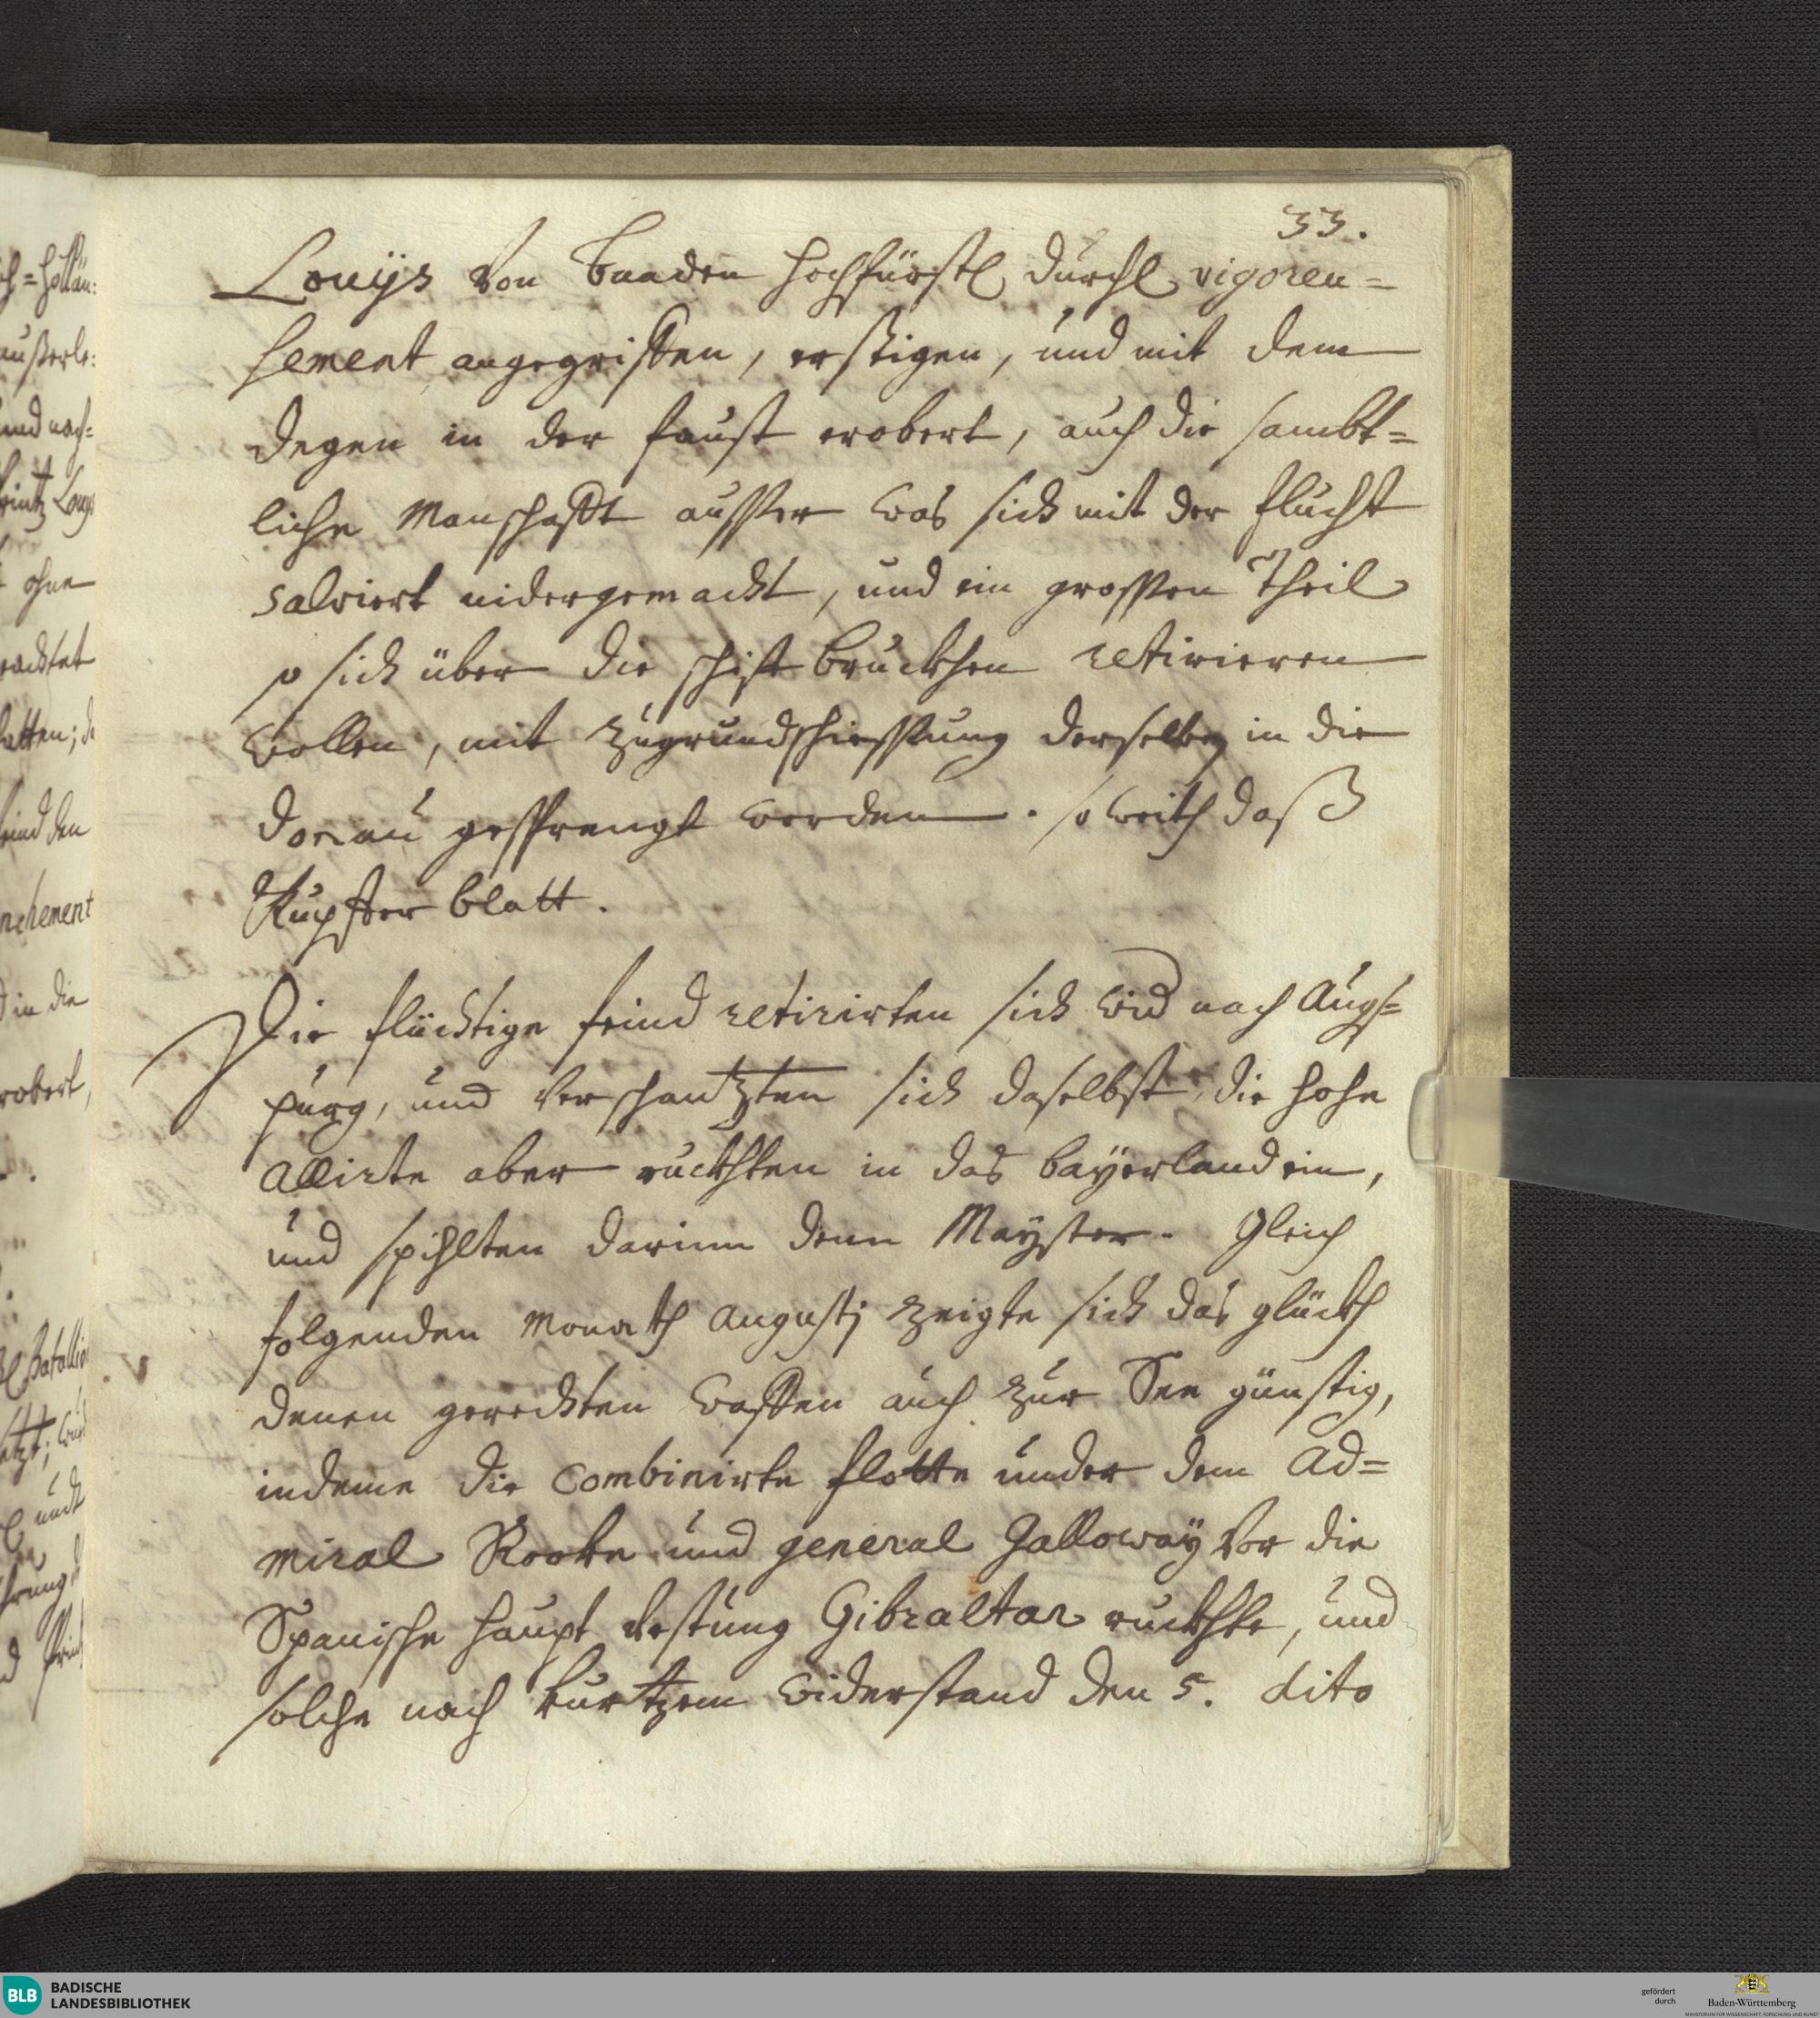 33.
Louÿs von Baaden hochfürstl durchl vigoren=
hement angegriffen, erstigen, und mit dem
degen in der faust erobert, auch die sambt=
liche Manschafft ausser was sich mit der flucht
salviert nidergemacht, und ein grossen Theil
so sich über die schiffbruckhen retirieren
wollen, mit zugrundschiessung derselben in die
donau gesprengt worden. so weith daß
Kupffer blatt.
Die flüchtige feind retirirten sich wid nach Augs=
purg, und verschantzten sich daselbst, die hohe
allirte aber ruckhten in das bayerland ein,
und spihlten darinn denn Mayster. Gleich
folgenden Monath Augustj zeigte sich das glückh
denen gerechten waffen auch zur See günstig,
indeme die combinirte flotte under dem Ad=
miral Rooke und general Galloway vor die
Spanische haupt vestung Gibraltar ruckhte, und
solche nach kurtzem widerstand den 5. dito
ch=hollän:
außerle:
und nach=
Printz Louys
ohne
hatten; da
feind den
nchement
d in die
robert,
Batallio
etzt;
und
BLB BADISCHE
LANDESBIBLIOTHEK
gefördert
durch
Baden-Württemberg
MINISTERIUM FÜR WISSENSCHAFT, FORSCHUNG UND KUNST